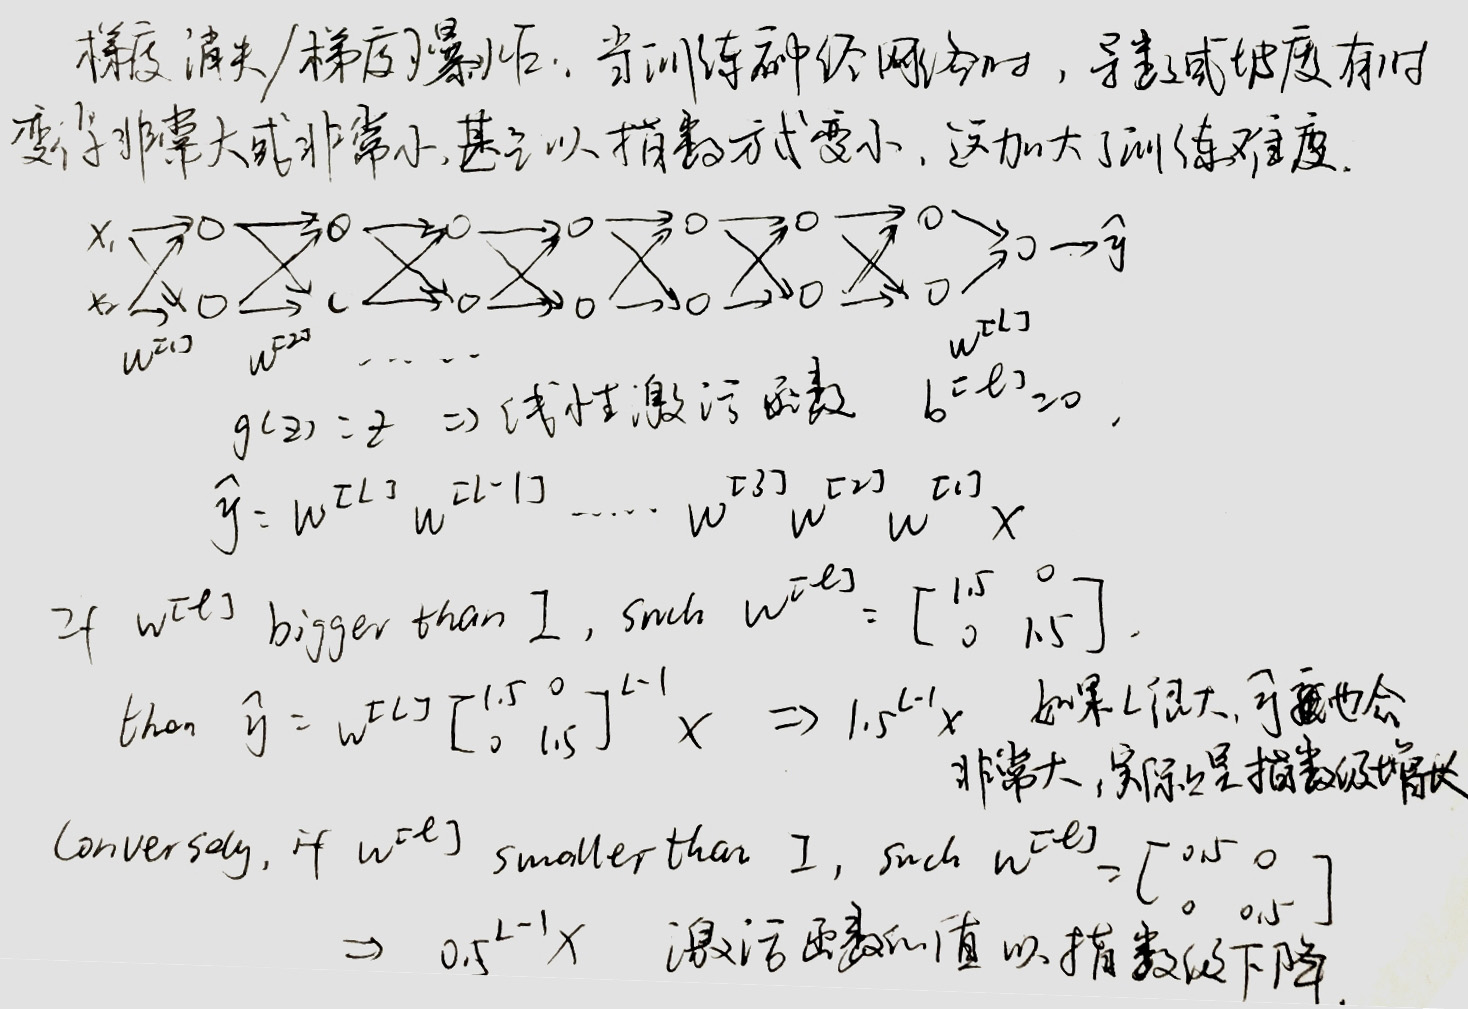 梯度消失/梯度爆炸: 当训练神经网络时, 导数或坡度有时
变得非常大或非常小, 甚至以指数方式变小, 这加大了训练难度.
x₁ x₂ → ŷ
w^[1] w^[2] ...... w^[L]
g(z) = z ⇒ 线性激活函数 b^[l] = 0,
ŷ = w^[L] w^[L-1] ...... w^[3] w^[2] w^[1] x
If w^[l] bigger than I, such w^[l] = [1.5 0; 0 1.5].
then ŷ = w^[L] [1.5 0; 0 1.5]^(L-1) x ⇒ 1.5^(L-1) x 如果L很大, ŷ 也会
非常大, 实际上呈指数级增长
Conversely, if w^[l] smaller than I, such w^[l] = [0.5 0; 0 0.5]
⇒ 0.5^(L-1) x 激活函数的值以指数级下降.